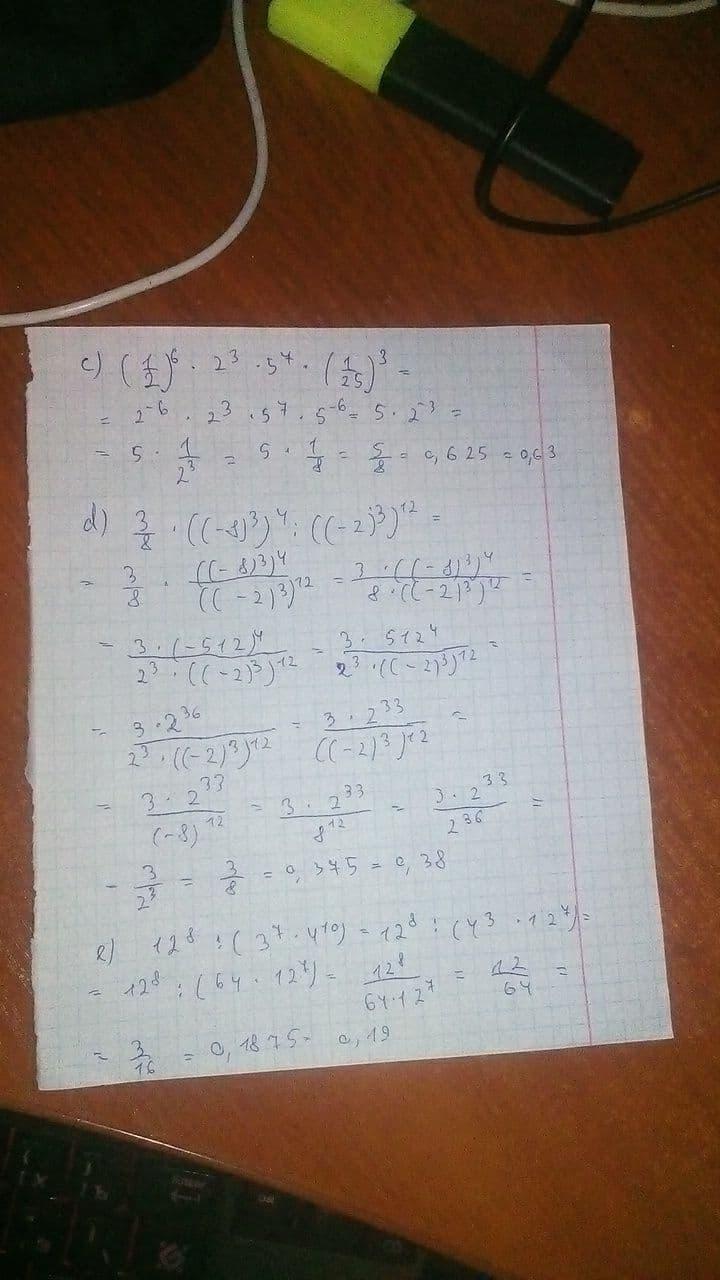 c) (1/2)^6 · 2^3 · 5^7 · (1/25)^3 =
= 2^-6 · 2^3 · 5^7 · 5^-6 = 5 · 2^-3 =
= 5 · 1/2^3 = 5 · 1/8 = 5/8 = 0,625 = 0,63
d) 3/8 · ((-8)^3)^4 : ((-2)^3)^12 =
= 3/8 · ((-8)^3)^4/((-2)^3)^12 = 3 · ((-8)^3)^4/8 · ((-2)^3)^12 =
= 3 · (-512)^4/2^3 · ((-2)^3)^12 = 3 · 512^4/2^3 · ((-2)^3)^12 =
= 3 · 2^36/2^3 · ((-2)^3)^12 = 3 · 2^33/((-2)^3)^12 =
= 3 · 2^33/(-8)^12 = 3 · 2^33/8^12 = 3 · 2^33/2^36 =
= 3/2^3 = 3/8 = 0,375 = 0,38
e) 12^8 : (3^7 · 4^10) = 12^8 : (4^3 · 12^7) =
= 12^8 : (64 · 12^7) = 12^8/64 · 12^7 = 12/64 =
= 3/16 = 0,1875 = 0,19